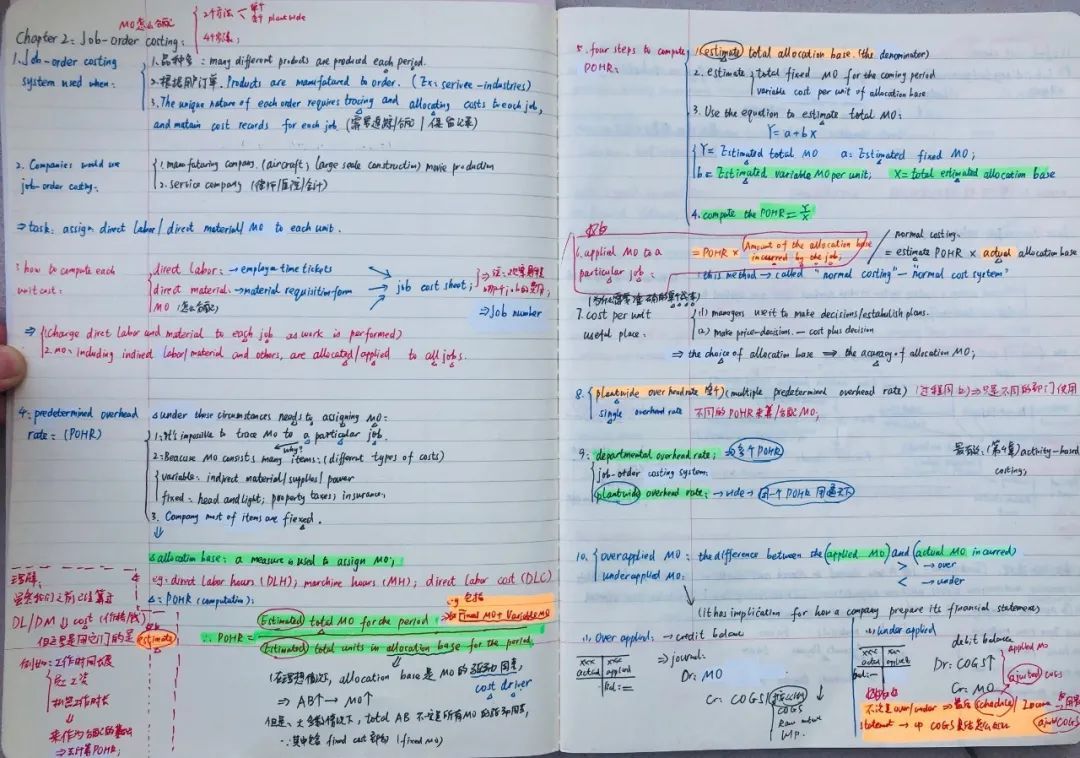 MO怎么分配
2个方法 单个 多个 plantwide
4个方法:
Chapter 2: Job-order costing:
1. Job-order costing
system used when:
1. 品种多: many different products are produced each period.
2. 根据用户订单. Products are manufatured to order. (Ex: serivee-industries)
3. The unique nature of each order requires tracing and allocating costs to each job,
and matain cost records for each job (需要追踪/分配 / 保留记录)
2. Companies would use
job-order costing:
1. manufaturing company. (aircraft; large scale construction) movie production
2. service company (律师/医院/会计)
⇒ task: assign direct labor / direct material / MO to each unit.
3. how to compute each
unit cost:
direct labor: → employee time tickets
direct material: → material requisition form
MO (怎么分配)
job cost sheet;
⇒ Job number
⇒ 1. Charge diret labor and material to each job as work is performed)
2. MO: including indired labor/material and others, are allocated/applied to all jobs.
4. predetermined overhead
rate: (POHR)
△ under those circumstances needs to assigning MO:
1. It's impossible to trace MO to a particular job.
why?
2. Beacuse MO consists many items: (different types of costs)
variable: indirect material/supplies/power
fixed: head and light; property taxes; insurance.
3. Company most of items are fiexed.
⇓
△ allocation base: a measure is used to assign MO;
eg: direct labor hours (DLH); marchine hours (MH); direct labor cost (DLC)
△: POHR (computation):
∴ POHR =
Estimated total MO for the period
eg 包括
Fixed MO + Variable MO
Estimated total units in allocation base for the period.
(在理想情况, allocation base是 MO的驱动因素,
cost driver
⇒ AB↑ → MO↑
但是: 大多数情况下, total AB 不一定是所有MO的驱动因素,
∵ 其中包含 fixed cost 部分 (fixed MO)
理解:
DL/DM ⇓ cost
但这里用它们的是 estimate
例如: 工作时间长度
员工工资
机器工作时长
↓
来作为分配的基础
⇒ 去计算POHR;
5. four steps to compute
POHR:
1. estimate total allocation base. (the denominator)
2. estimate total fixed MO for the coming period
variable cost per unit of allocation base
3. Use the equation to estimate total MO:
Y = a + bX
Y = Estimated total MO a: Estimated fixed MO;
b = Estimated variable MO per unit; X = total estimated allocation base
4. compute the POHR = Y/X
6. applied MO to a
particular job:
= POHR × Amount of the allocation base
incurred by the job;
normal costing.
= estimate POHR × actual allocation base
this method → called "normal costing" — "Normal cost system"
7. cost per unit
useful place:
(1) managers use it to make decisions/establish plans.
(2) make price-decisions. — cost plus decision
⇒ the choice of allocation base ⇒ the accuracy of allocation MO;
8. plantwide overhead rate (multiple predetermined overhead rate)
single overhead rate
⇒ 只是不同的部门使用
不同的POHR来算/分配MO;
9. departmental overhead rate; ⇒ 多个POHR
job-order costing system.
plantwide overhead rate: → wide → 用一个POHR 用遍天下
最有效: (第4章) activity-based
costing;
10. overapplied MO:
underapplied MO:
the difference between the (applied MO) and (actual MO incurred)
> → over
< → under
(It has implication for how a company prepare its financial statement)
(1) Over applied: → credit balance
xxx xxx
actual applied
Bal: =
⇒ journal:
Dr: MO
Cr: COGS
COGS
WIP.
(2) under applied
debit balance
xxx xxx
actual applied
bal: =
Dr: COGS↑
Cr: MO
applied MO
ajusted COGS
不论是over/under ⇒ 最后 schedule / Income
statement → 中 COGS
ajust COGS